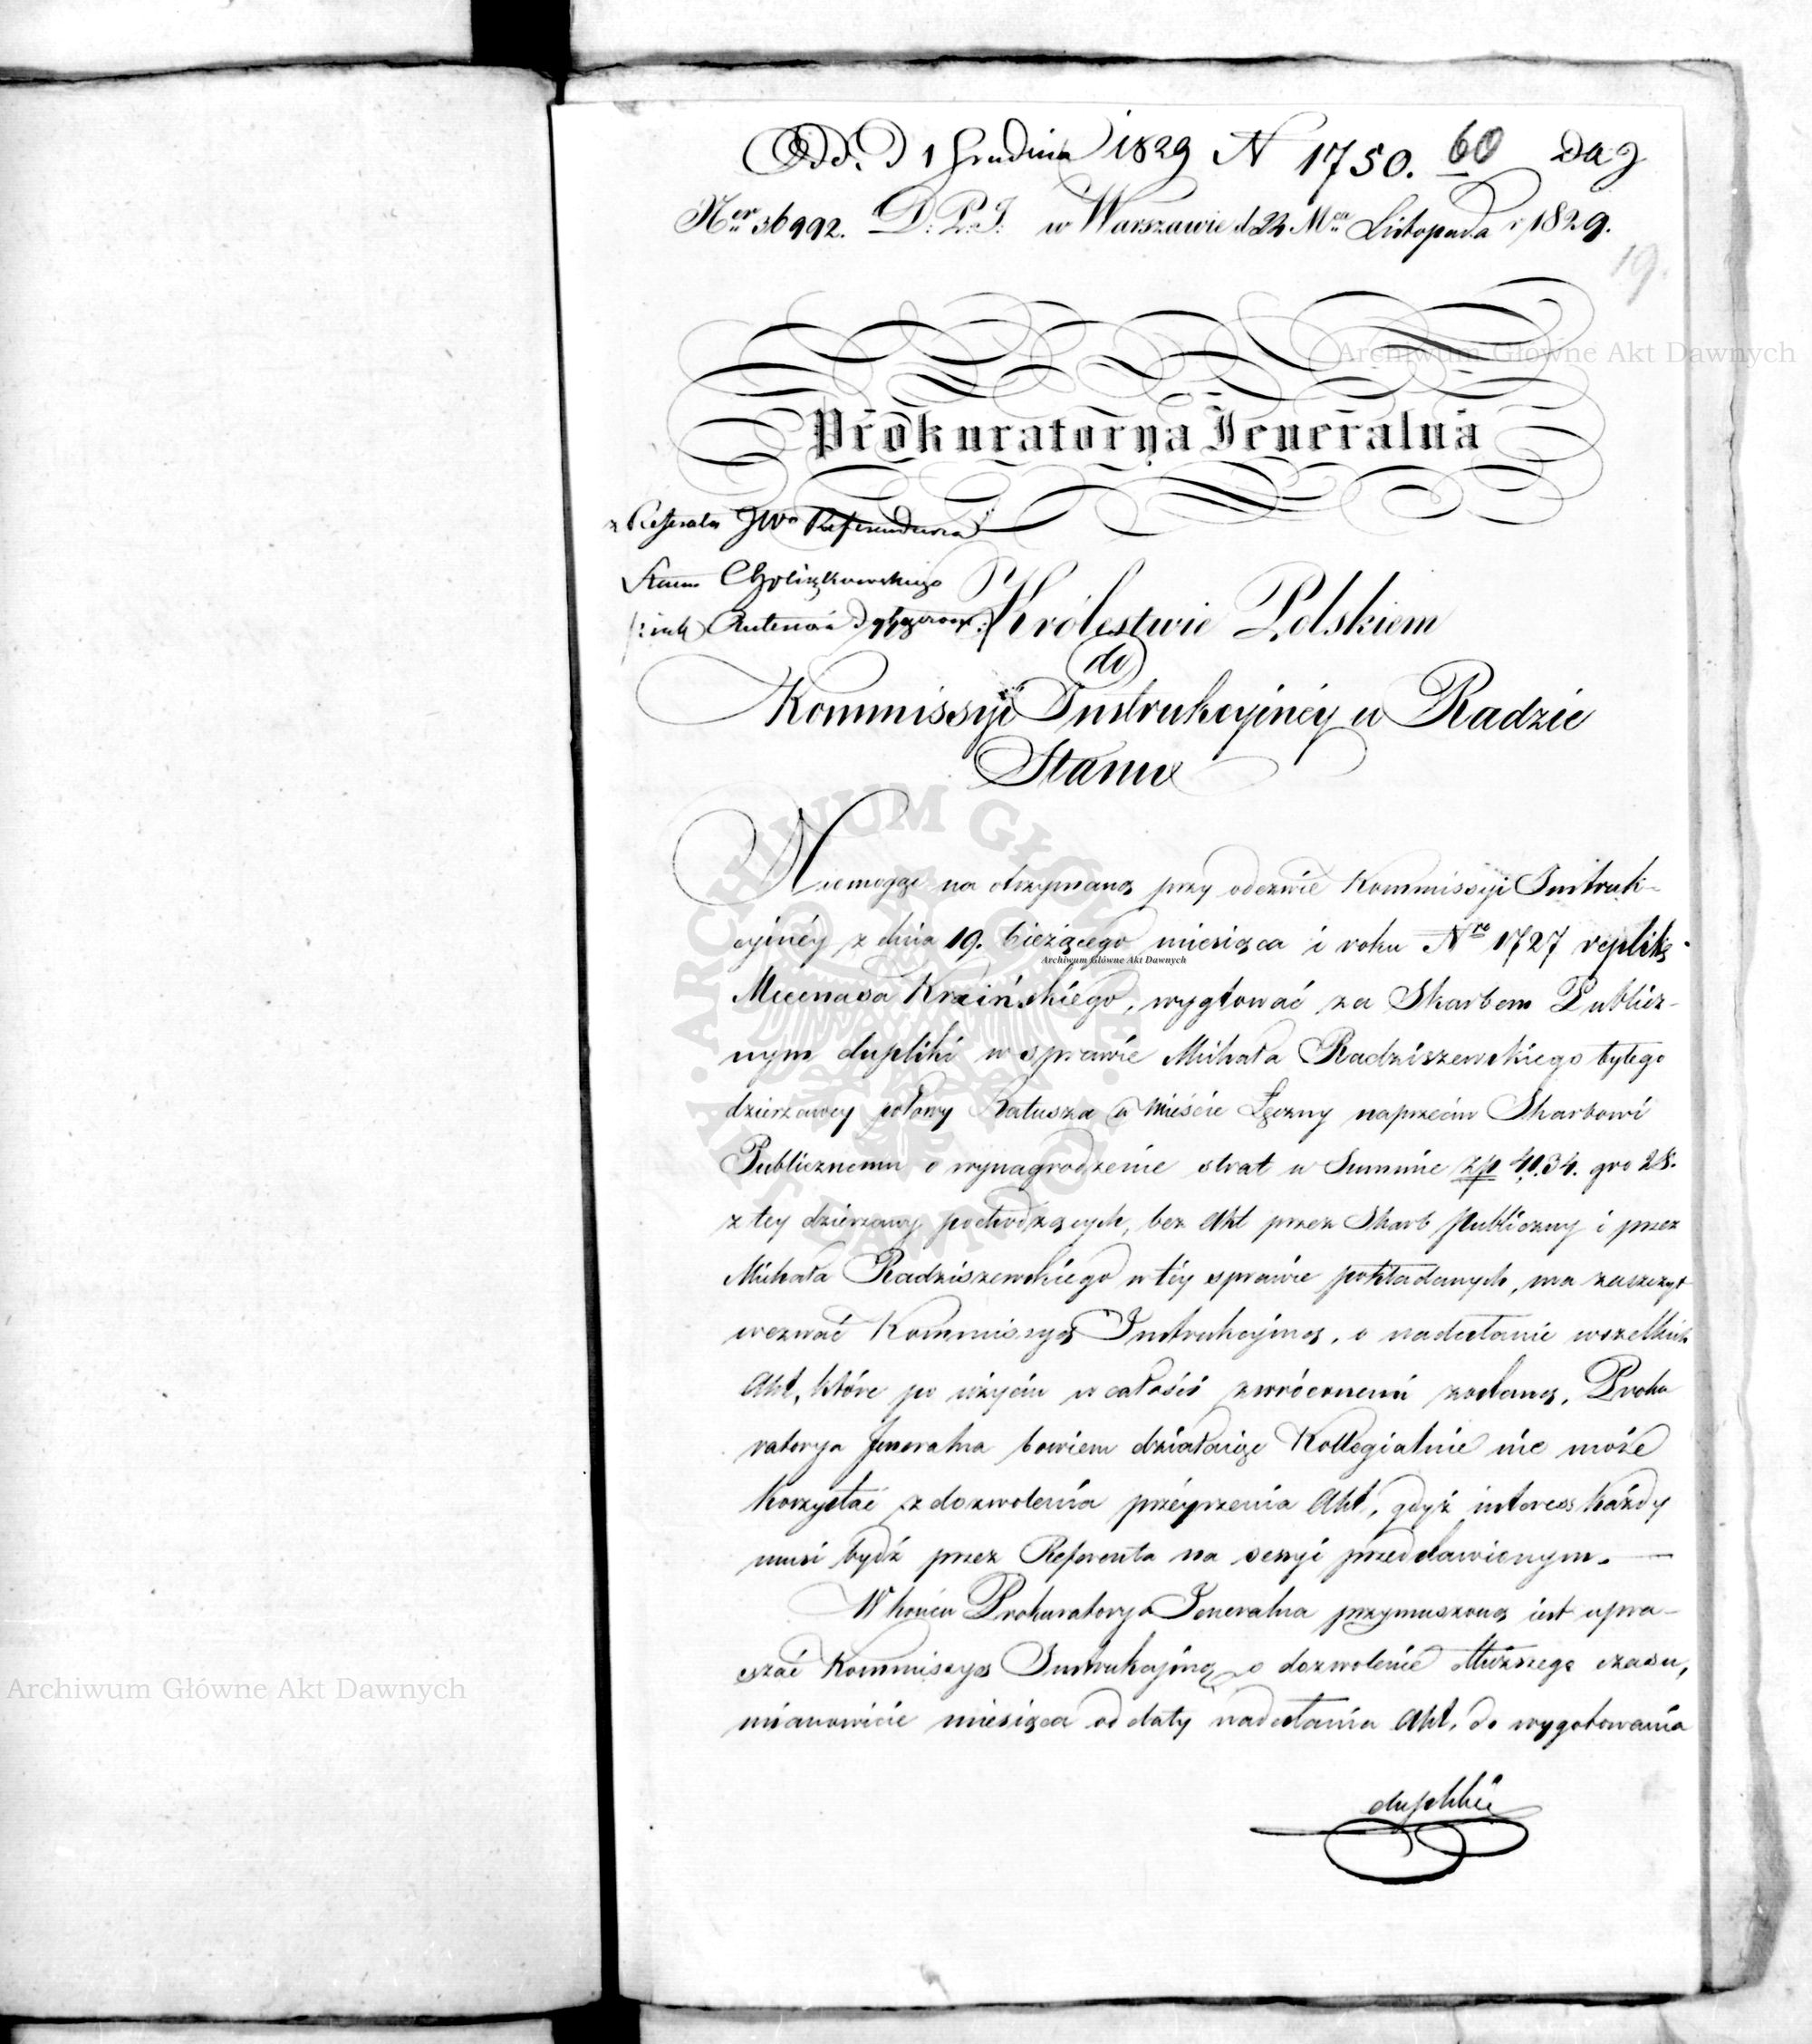 Odd. D 1 Grudnia 1829 N 1750. 60
Ner 36992. D. P. J. w Warszawie d 22 Mca Listopada r 1829.
19.
Prokuratorya Jeneralna
z Referatu JWo Referendarza
Stanu
Królestwie Polskiem
do
Kommissyi Instrukcyinéy w Radzie
Stanu
Niemogąc na otrzymaną przy odezwie Kommissyi Instruk-
cyinéy z dnia 19. bieżącego miesiąca i roku Nro 1727 replikę
Mecenasa Kraińskiego, wygtować za Skarbem Publicz-
nym dupliki w sprawie Michała Radziszewskiego byłego
dzierżawcy połowy Ratusza w mieście Łęczny naprzeciw Skarbowi
Publicznemu o wynagrodzenie strat w Summie zp 4034. gro 28.
z tey dzierzawy pochodzących, bez Akt przez Skarb Publiczny i przez
Michała Radziszewskiego w téy sprawie pokładanych, ma zaszczyt
wezwać Kommissyą Instrukcyiną, o nadesłanie wszelkich
Akt, które po użyciu w całości zwróconemi zostaną, Proku
ratorya Jeneralna bowiem działaiąc Kollegialnie nie może
korzystać z dozwolenia przeyrzenia Akt, gdyż interess każdy
musi bydź przez Referenta na sessyi przedstawionym.
W końcu Prokuratorya Jeneralna przymuszoną iest upra-
szać Kommissyą Instrukcyiną o dozwolenie dłuższego czasu,
mianowicie miesiąca od daty nadesłania Akt, do wygotowania
dupliki
Archiwum Główne Akt Dawnych
Archiwum Główne Akt Dawnych
Archiwum Główne Akt Dawnych
ARCHIWUM GŁÓWNE AKT DAWNYCH